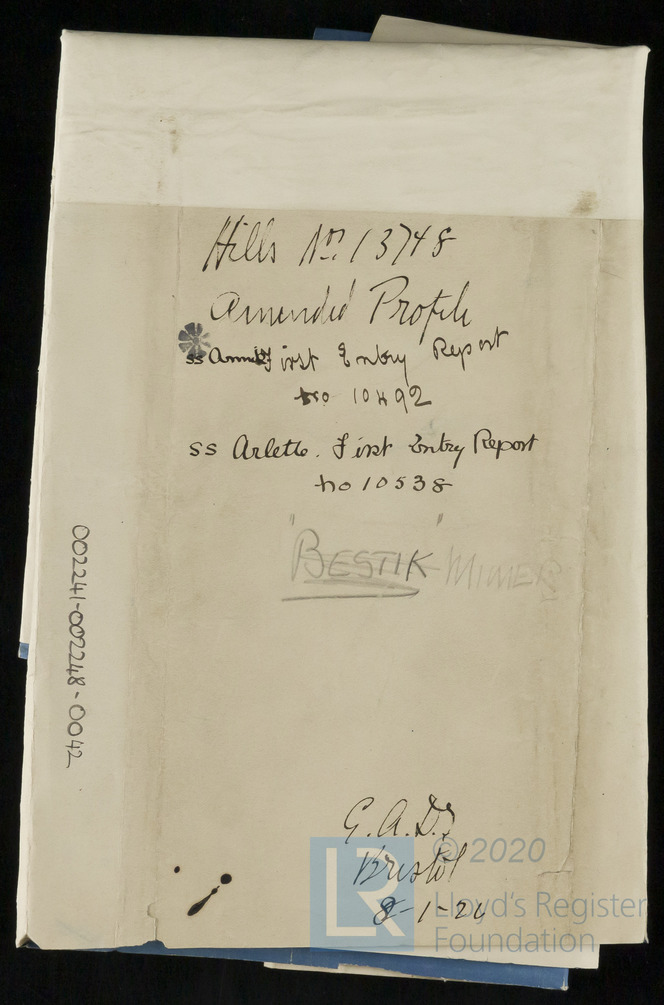 Hills No. 13748
Amended Profile
ss First Entry Report
no 10492
ss Arlette. First Entry Report
no 10538
"BESTIK"
G.A.D.
Bristol
8-1-24
002241-002248-0042
LR
© 2020
Lloyd's Register
Foundation